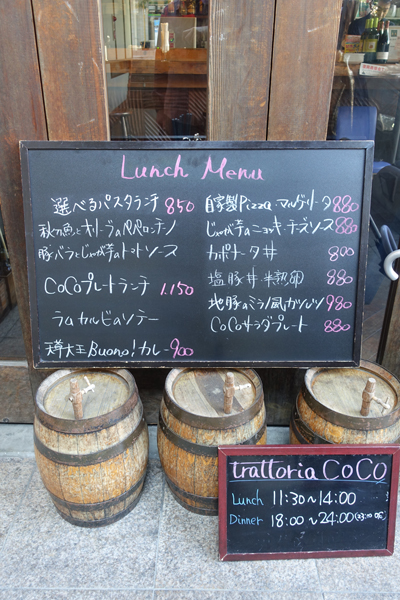 Lunch Menu
選べるパスタランチ 850
秋の魚とオリーブのペペロンチーノ
豚バラとじゃが芋のトマトソース
CoCoプレートランチ 1,150
ラムカルビのソテー
樽大王Buono!カレー 900
自家製Pizza マルゲリータ 880
じゃが芋のニョッキ チーズソース 880
カポナータ丼 800
塩豚丼 半熟卵 880
地豚のミラノ風カツレツ 980
CoCoサラダプレート 880
trattoria CoCo
Lunch 11:30~14:00
Dinner 18:00~24:00